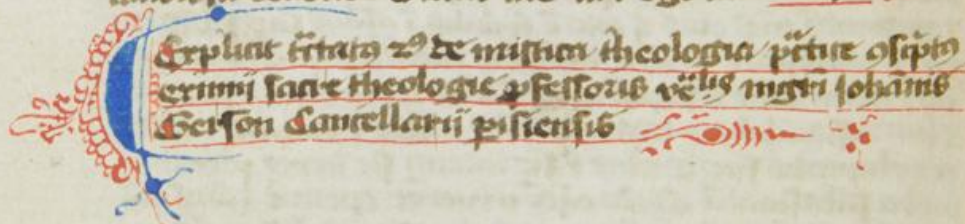 Explicit tractatus 2us de mistica theologia practice conscriptus
eximii sacre theologie professoris venerabilis magistri Johannis
Gerson Cancellarii parisiensis